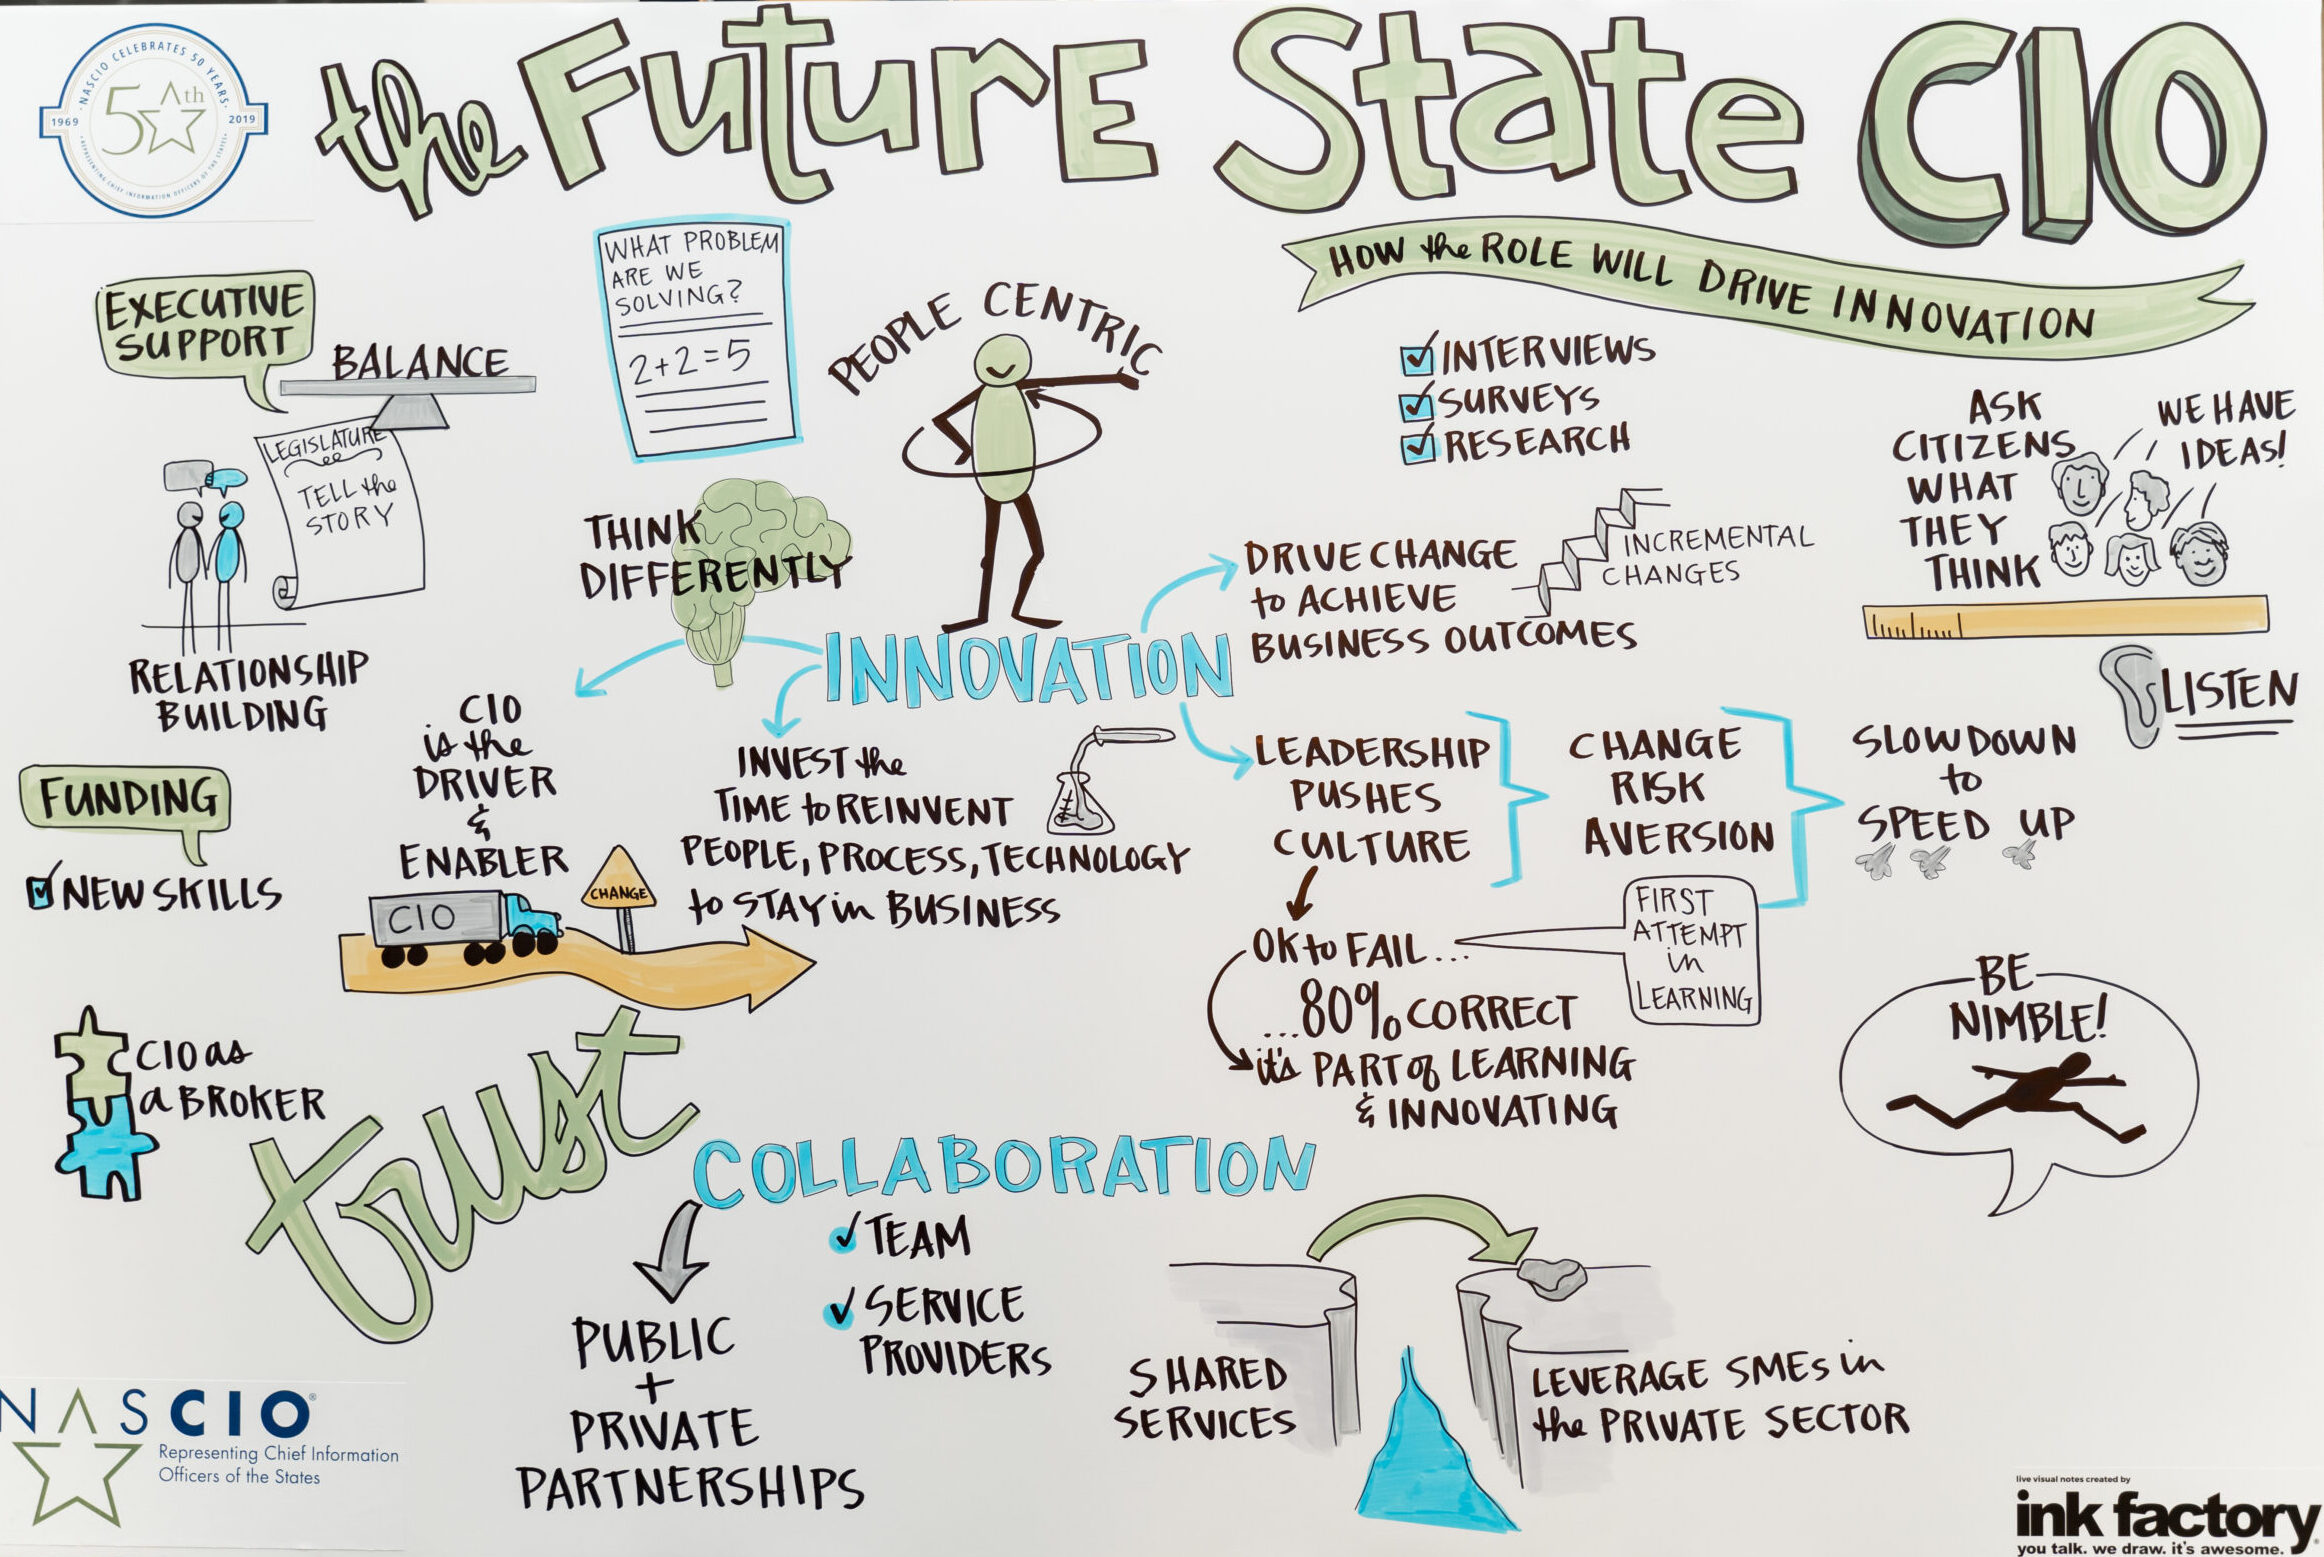 NASCIO CELEBRATES 50 YEARS
50th
1969
2019
REPRESENTING CHIEF INFORMATION OFFICERS OF THE STATES
the FUTURE State CIO
HOW the ROLE WILL DRIVE INNOVATION
EXECUTIVE
SUPPORT
BALANCE
LEGISLATURE
TELL the
STORY
RELATIONSHIP
BUILDING
WHAT PROBLEM
ARE WE
SOLVING?
2+2=5
PEOPLE CENTRIC
THINK
DIFFERENTLY
INTERVIEWS
SURVEYS
RESEARCH
ASK
CITIZENS
WHAT
THEY
THINK
WE HAVE
IDEAS!
LISTEN
INNOVATION
DRIVE CHANGE
to ACHIEVE
BUSINESS OUTCOMES
INCREMENTAL
CHANGES
CIO
is the
DRIVER
&
ENABLER
CIO
CHANGE
INVEST the
TIME to REINVENT
PEOPLE, PROCESS, TECHNOLOGY
to STAY in BUSINESS
LEADERSHIP
PUSHES
CULTURE
CHANGE
RISK
AVERSION
SLOW DOWN
to
SPEED UP
OK to FAIL...
FIRST
ATTEMPT
in
LEARNING
...80% CORRECT
it's PART of LEARNING
& INNOVATING
BE
NIMBLE!
FUNDING
NEW SKILLS
CIO as
a BROKER
trust
COLLABORATION
TEAM
SERVICE
PROVIDERS
PUBLIC
+
PRIVATE
PARTNERSHIPS
SHARED
SERVICES
LEVERAGE SMEs in
the PRIVATE SECTOR
NASCIO®
Representing Chief Information
Officers of the States
live visual notes created by
ink factory
you talk. we draw. it's awesome.